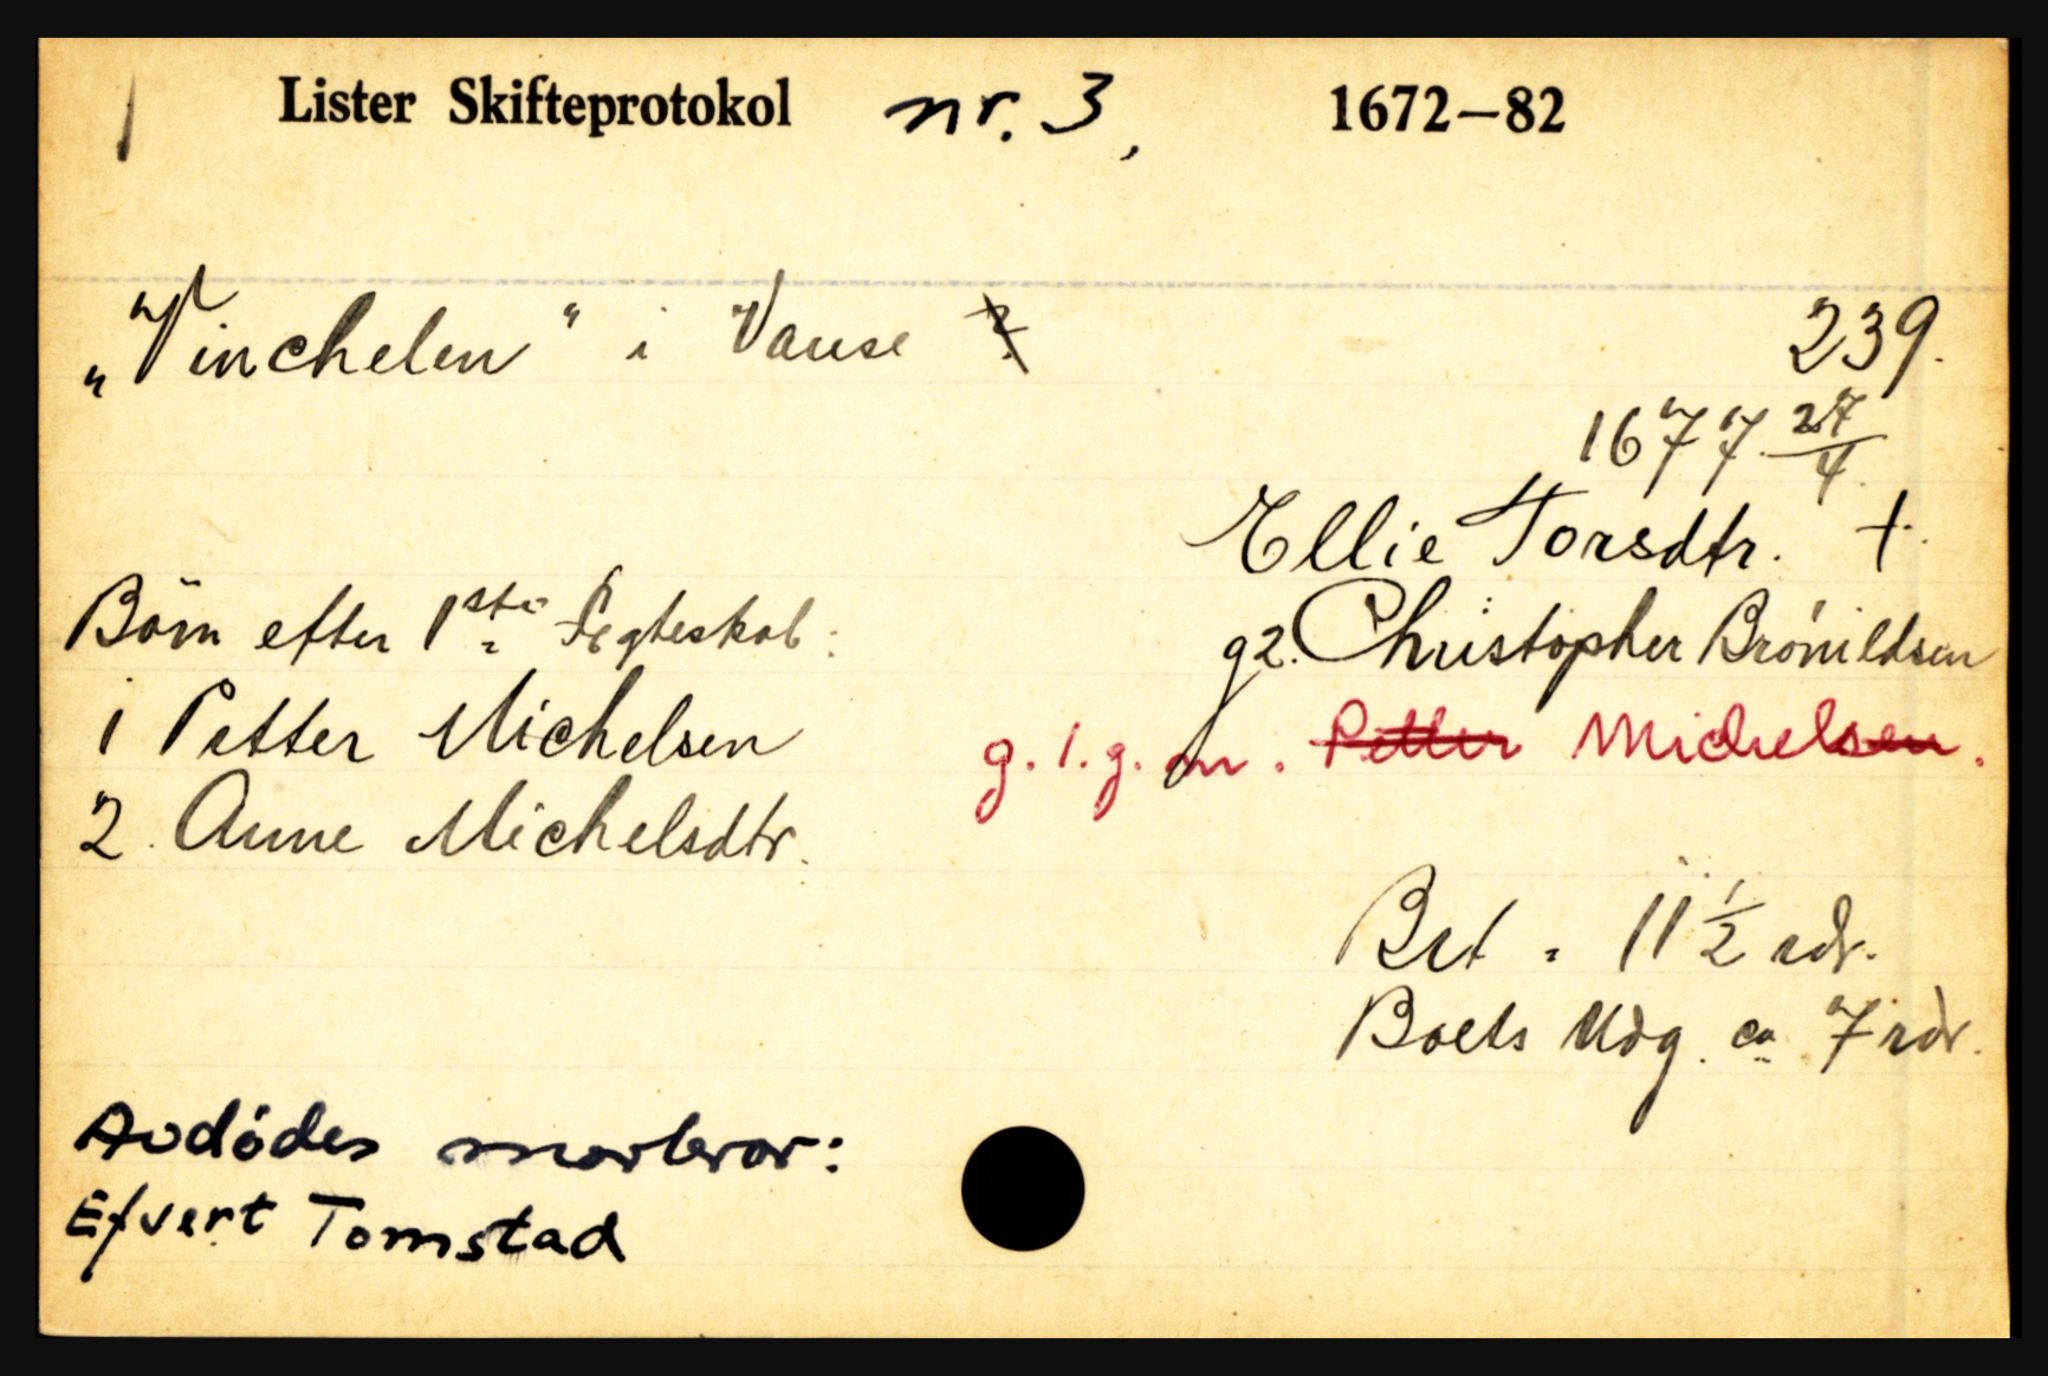 1 Lister Skifteprotokol nr. 3, 1672–82
„Vinchelen" i Vanse ? 239.
1677 27/4.
Ellie Torsdtr. †.
Börn efter 1ste Ægteskab: g2. Christopher Brönildsen
1 Petter Michelsen g. 1. g. m. Petter Michelsen.
2. Anne Michelsdtr.
Brt = 11 1/2 rdr.
Boets Udg. ca 7 rdr.
Avdödes morbror:
Efvert Tomstad